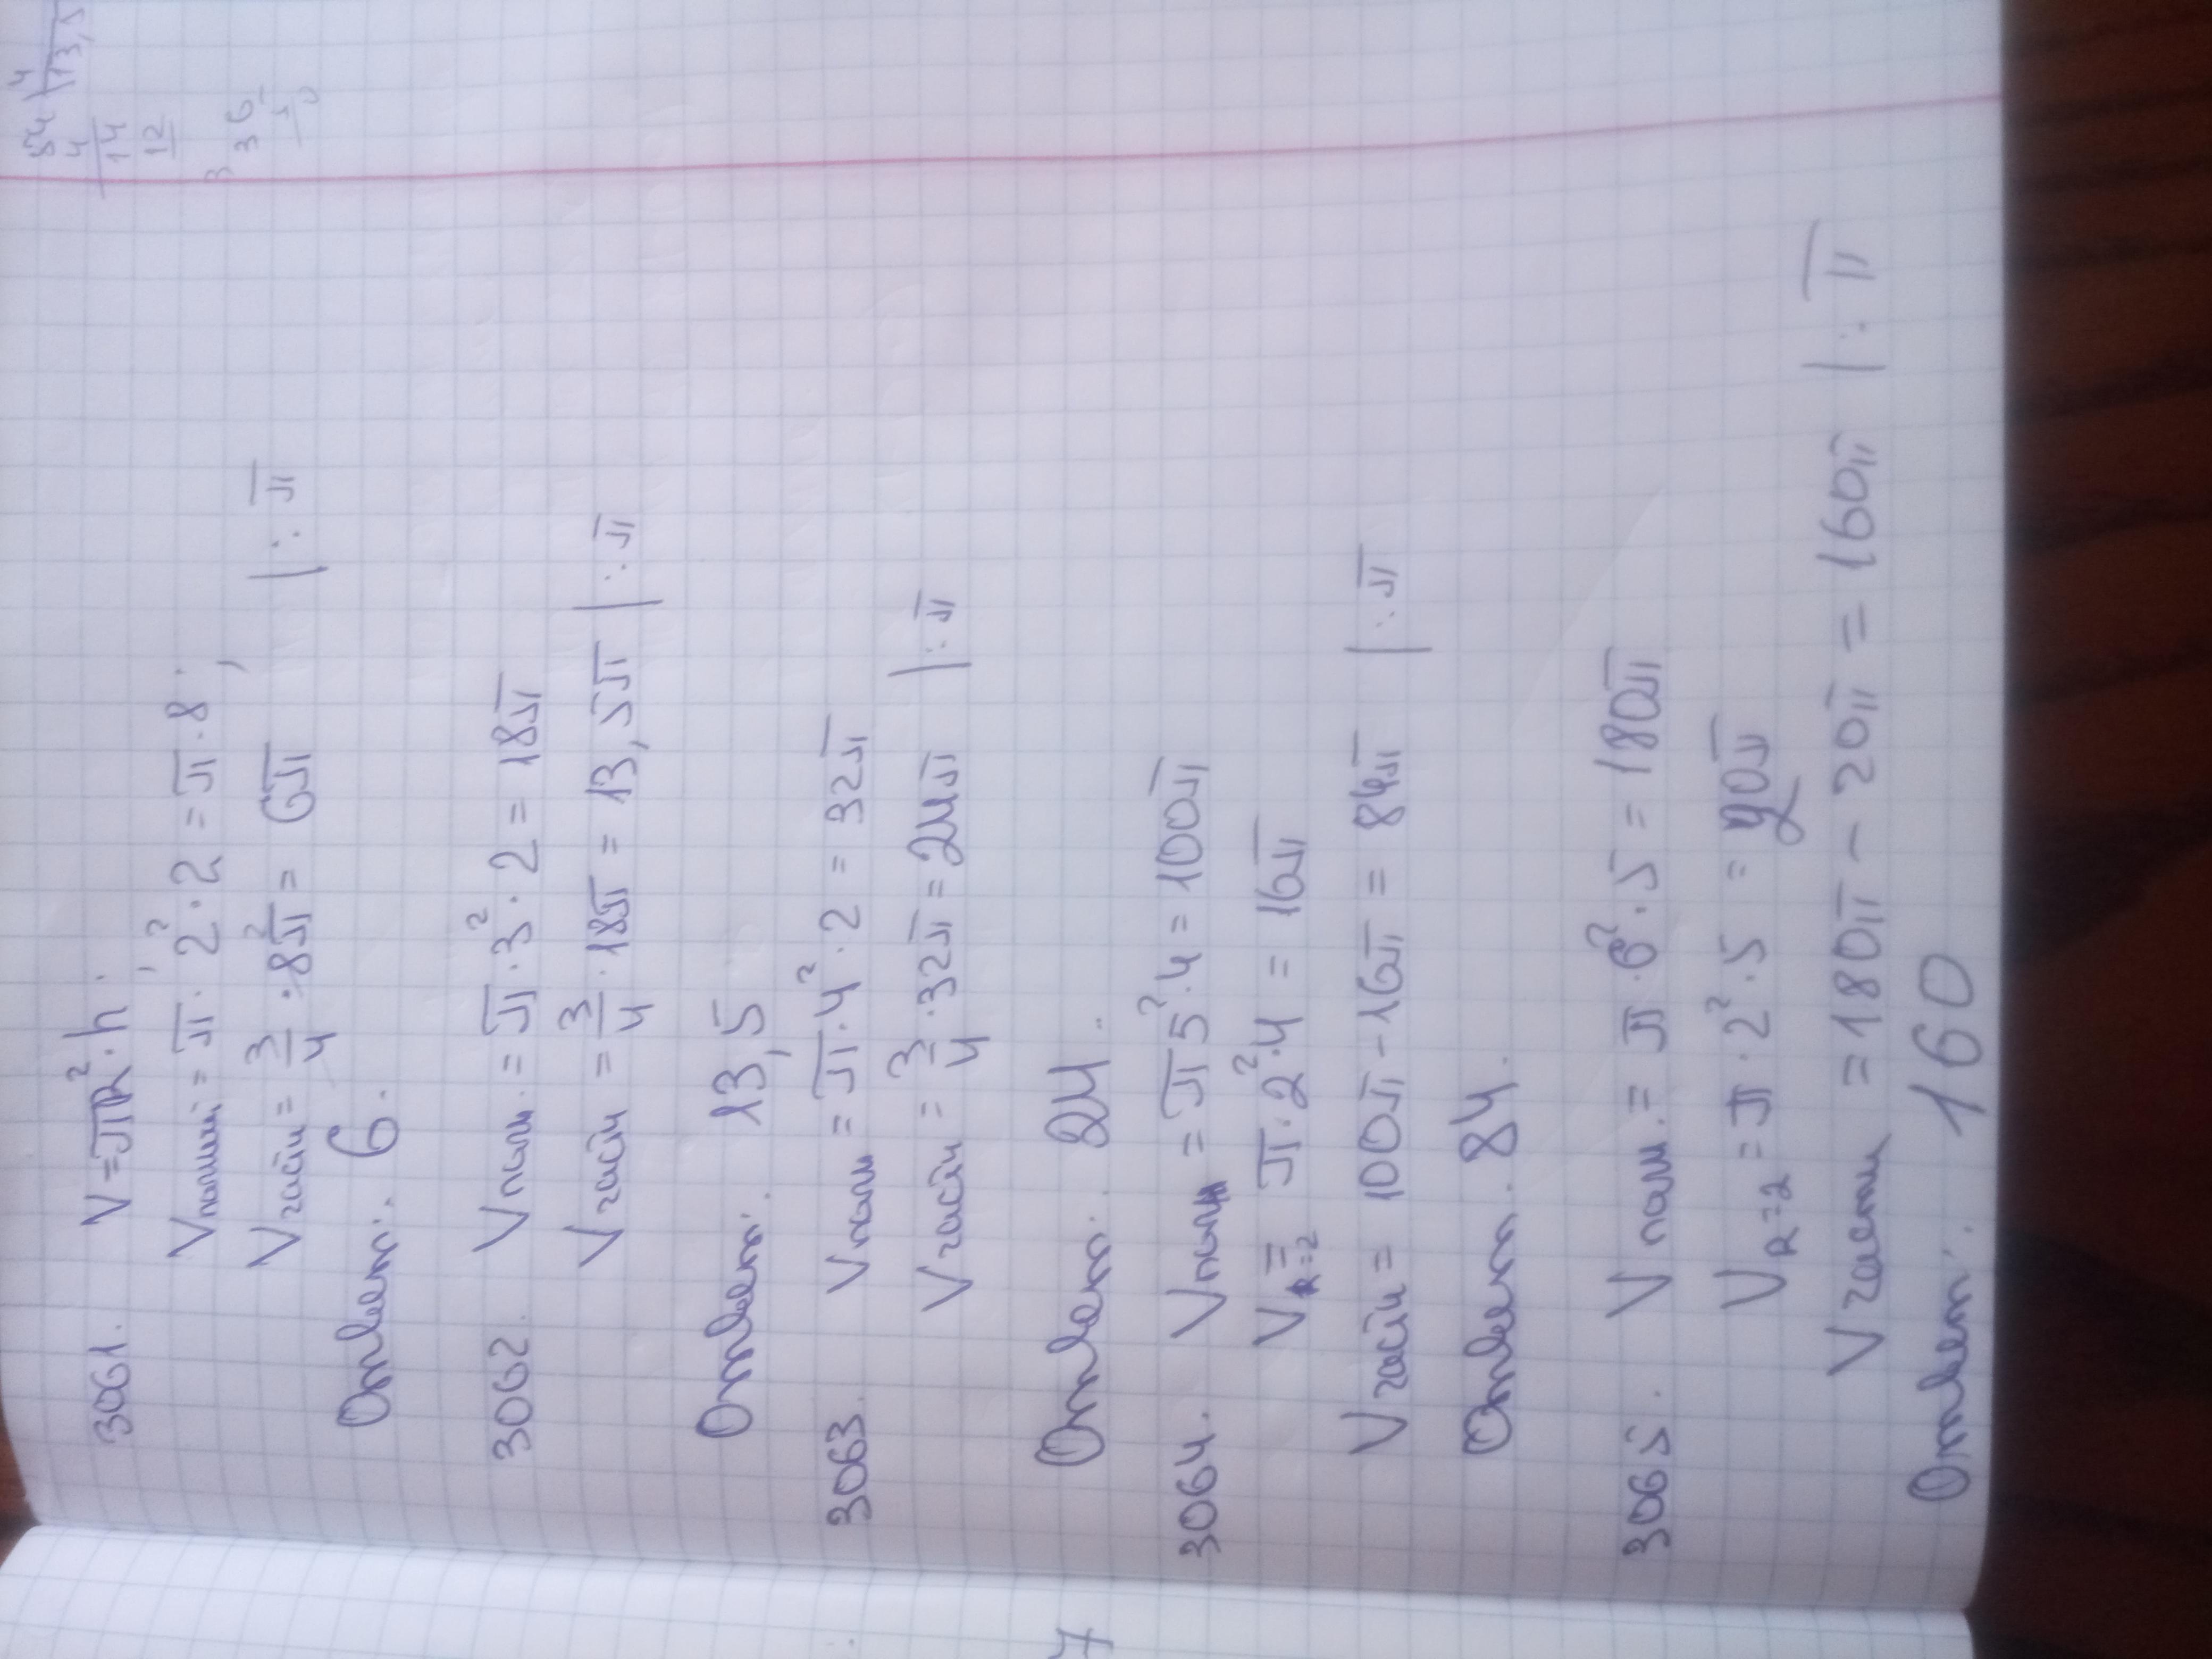 3061. V=πR²·h;
Vполный = π·2²·2 = π·8;
Vчасти = 3/4 · 8π = 6π |:π
Ответ: 6.
3062. Vполн. = π·3²·2 = 18π
Vчасти = 3/4 · 18π = 13,5π |:π
Ответ: 13,5
3063. Vполн = π·4²·2 = 32π
Vчасти = 3/4 · 32π = 24π |:π
Ответ: 24.
3064. Vполн = π5²·4 = 100π
V R=2 = π·2²·4 = 16π
Vчасти = 100π - 16π = 84π |:π
Ответ: 84.
3065. Vполн. = π·6²·5 = 180π
V R=2 = π·2²·5 = 20π
Vчасти = 180π - 20π = 160π |:π
Ответ: 160
54 4
4 13,5
14
12
7